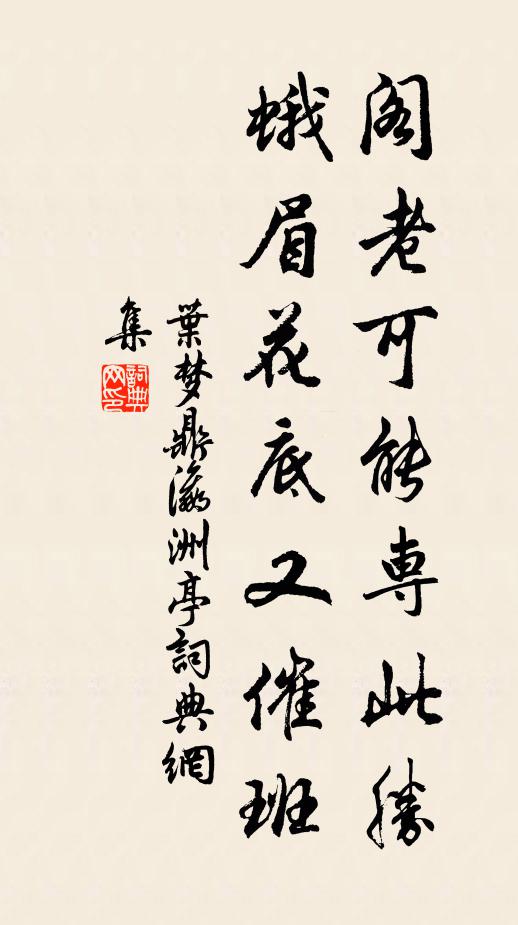 阁老可能専此勝
蛾眉花底又催班
葉梦鼎瀛洲亭詞典網
集
詞典网印